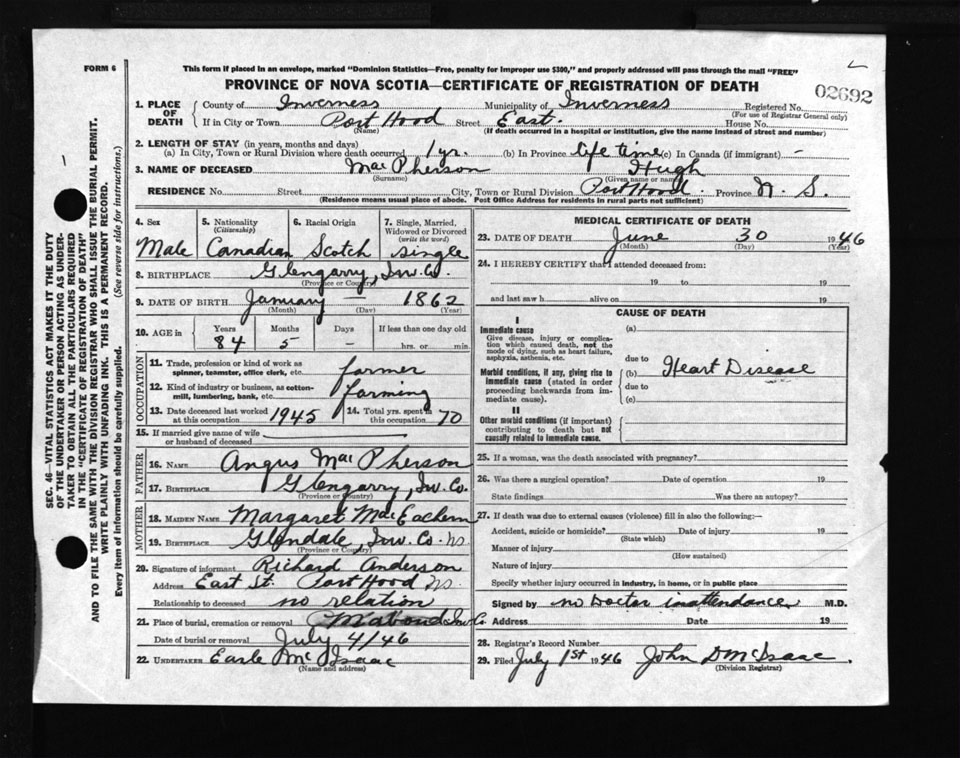 FORM 6
This form if placed in an envelope, marked "Dominion Statistics—Free, penalty for improper use $300," and properly addressed will pass through the mail "FREE"
PROVINCE OF NOVA SCOTIA—CERTIFICATE OF REGISTRATION OF DEATH
02692
1. PLACE OF DEATH
County of Inverness Municipality of Inverness Registered No.
(For use of Registrar General only)
If in City or Town Port Hood Street East. House No.
(Name) (If death occurred in a hospital or institution, give the name instead of street and number)
2. LENGTH OF STAY (in years, months and days)
(a) In City, Town or Rural Division where death occurred 1 yr. (b) In Province Life time (c) In Canada (if immigrant) —
3. NAME OF DECEASED Mac Pherson Hugh
(Surname) (Given name or names)
RESIDENCE No. Street City, Town or Rural Division Port Hood. Province N. S.
(Residence means usual place of abode. Post Office Address for residents in rural parts not sufficient)
4. Sex Male
5. Nationality (Citizenship) Canadian
6. Racial Origin Scotch
7. Single, Married, Widowed or Divorced (write the word) single
8. BIRTHPLACE Glengarry, Inv. Co.
(Province or Country)
9. DATE OF BIRTH January — 1862
(Month) (Day) (Year)
10. AGE in Years Months Days If less than one day old
84 5 — hrs. or min.
OCCUPATION
11. Trade, profession or kind of work as spinner, teamster, office clerk, etc. farmer
12. Kind of industry or business, as cotton-mill, lumbering, bank, etc. farming
13. Date deceased last worked at this occupation 1945
14. Total yrs. spent in this occupation 70
15. If married give name of wife or husband of deceased
FATHER
16. NAME Angus Mac Pherson
17. BIRTHPLACE Glengarry, Inv. Co.
(Province or Country)
MOTHER
18. MAIDEN NAME Margaret Mac Eachern
19. BIRTHPLACE Glendale, Inv. Co. NS
(Province or Country)
20. Signature of informant Richard Anderson
Address East St. Port Hood NS.
Relationship to deceased no relation
21. Place of burial, cremation or removal Mabou Inv Co
Date of burial or removal July 4/46
22. UNDERTAKER Earle Mc Isaac
(Name and address)
MEDICAL CERTIFICATE OF DEATH
23. DATE OF DEATH June 30 1946
(Month) (Day) (Year)
24. I HEREBY CERTIFY that I attended deceased from:
19 to 19
and last saw h alive on 19
CAUSE OF DEATH
I
Immediate cause (a)
Give disease, injury or complication which caused death, not the mode of dying, such as heart failure, asphyxia, asthenia, etc.
due to
Morbid conditions, if any, giving rise to immediate cause (stated in order proceeding backwards from immediate cause). (b) Heart Disease
due to
(c)
II
Other morbid conditions (if important) contributing to death but not causally related to immediate cause.
25. If a woman, was the death associated with pregnancy?
26. Was there a surgical operation? Date of operation 19
State findings Was there an autopsy?
27. If death was due to external causes (violence) fill in also the following:—
Accident, suicide or homicide? Date of injury 19
(State which)
Manner of injury
(How sustained)
Nature of injury
Specify whether injury occurred in industry, in home, or in public place
Signed by no Doctor in attendance M.D.
Address Date 19
28. Registrar's Record Number
29. Filed July 1st 1946 John D McIsaac.
(Division Registrar)
SEC. 46—VITAL STATISTICS ACT MAKES IT THE DUTY
OF THE UNDERTAKER OR PERSON ACTING AS UNDER-
TAKER TO OBTAIN ALL THE PARTICULARS REQUIRED
IN THE "CERTIFICATE OF REGISTRATION OF DEATH"
AND TO FILE THE SAME WITH THE DIVISION REGISTRAR WHO SHALL ISSUE THE BURIAL PERMIT.
WRITE PLAINLY WITH UNFADING INK. THIS IS A PERMANENT RECORD.
Every item of information should be carefully supplied. (See reverse side for instructions.)